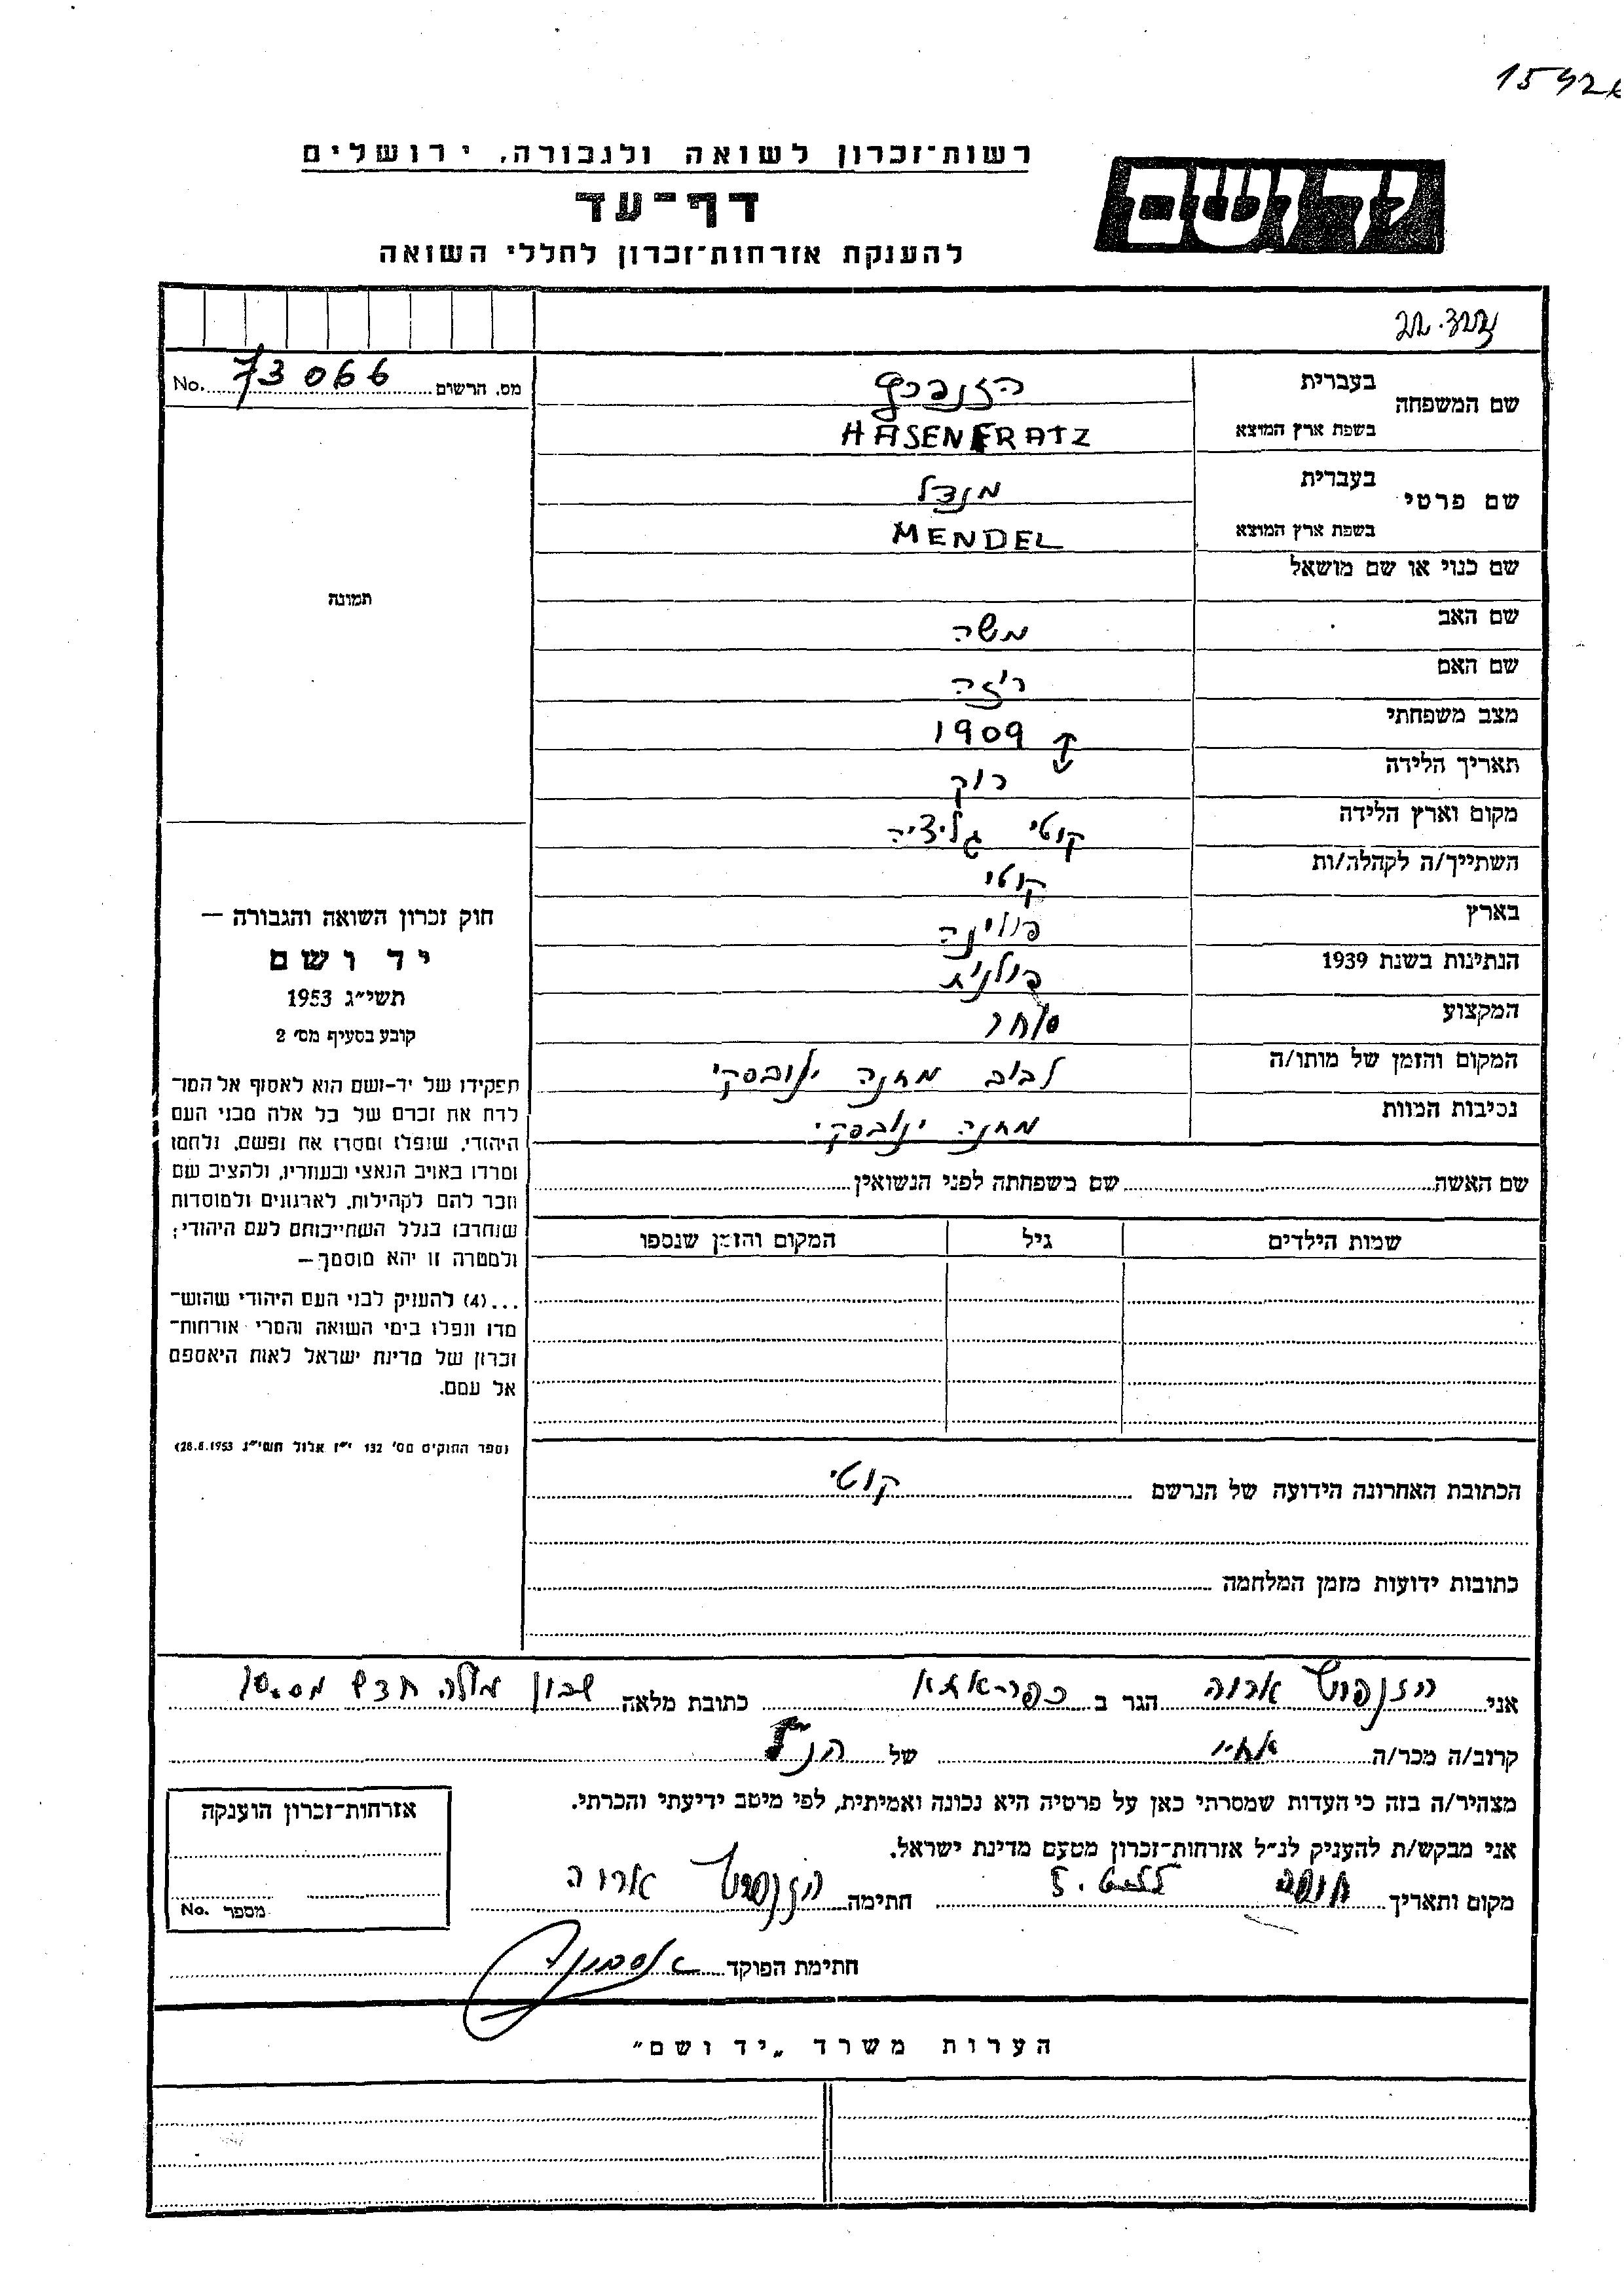 רשות־זכרון לשואה ולגבורה, ירושלים
יד ושם
דף־עד
להענקת אזרחות־זכרון לחללי השואה
מס. הרשום 73066 No.
שם המשפחה בעברית
בשפת ארץ המוצא HASENFRATZ
שם פרטי בעברית מנדל
בשפת ארץ המוצא MENDEL
תמונה
שם כנוי או שם מושאל
שם האב משה
שם האם ריזה
מצב משפחתי 1909
תאריך הלידה רוק
מקום וארץ הלידה קוטי גליציה
השתייך/ה לקהלה/ות קוטי
בארץ
הנתינות בשנת 1939 פולנית
המקצוע סוחר
המקום והזמן של מותו/ה לבוב מחנה ינובסקי
נסיבות המוות מחנה ינובסקי
חוק זכרון השואה והגבורה —
יד ושם
תשי״ג 1953
קובע בסעיף מס׳ 2
תפקידו של יד־ושם הוא לאסוף אל המו־
לדת את זכרם של כל אלה מבני העם
היהודי, שנפלו ומסרו את נפשם, נלחמו
ומרדו באויב הנאצי ובעוזריו, ולהציב שם
וזכר להם לקהילות, לארגונים ולמוסדות
שנחרבו בגלל השתייכותם לעם היהודי;
ולמטרה זו יהא מוסמך —
...(4) להעניק לבני העם היהודי שהוש־
מדו ונפלו בימי השואה והמרי אזרחות־
זכרון של מדינת ישראל לאות היאספם
אל עמם.
(ספר החוקים מס׳ 132 י״ז אלול תשי״ג 28.8.1953)
שם האשה שם משפחתה לפני הנשואין
שמות הילדים גיל המקום והזמן שנספו
הכתובת האחרונה הידועה של הנרשם קוטי
כתובות ידועות מזמן המלחמה
אני אריה הגר ב כפר־אתא כתובת מלאה שכון חדש
קרוב/ה מכר/ה אחיו של הנ״ל
מצהיר/ה בזה כי העדות שמסרתי כאן על פרטיה היא נכונה ואמיתית, לפי מיטב ידיעתי והכרתי.
אני מבקש/ת להעניק לנ״ל אזרחות־זכרון מטעם מדינת ישראל.
מקום ותאריך חיפה חתימה אריה
חתימת הפוקד
אזרחות־זכרון הוענקה
מספר No.
הערות משרד „יד ושם״